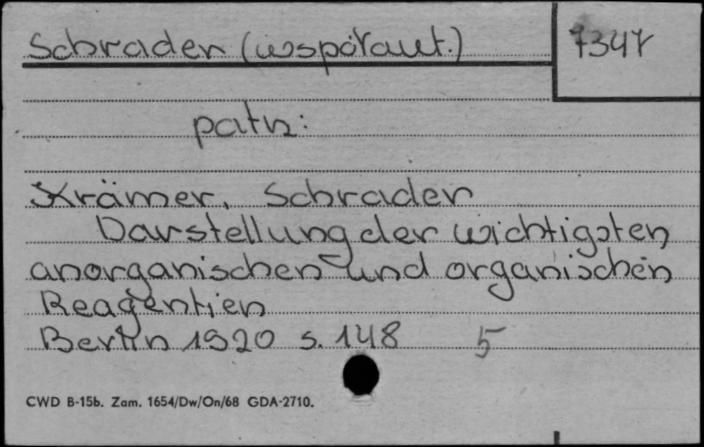 Schrader (współaut.)
7347
patrz:
Krämer, Schrader
Darstellung der wichtigsten
anorganischen und organischen
Reagentien
Berlin 1920 s. 148 5
CWD B-15b. Zam. 1654/Dw/On/68 GDA-2710.